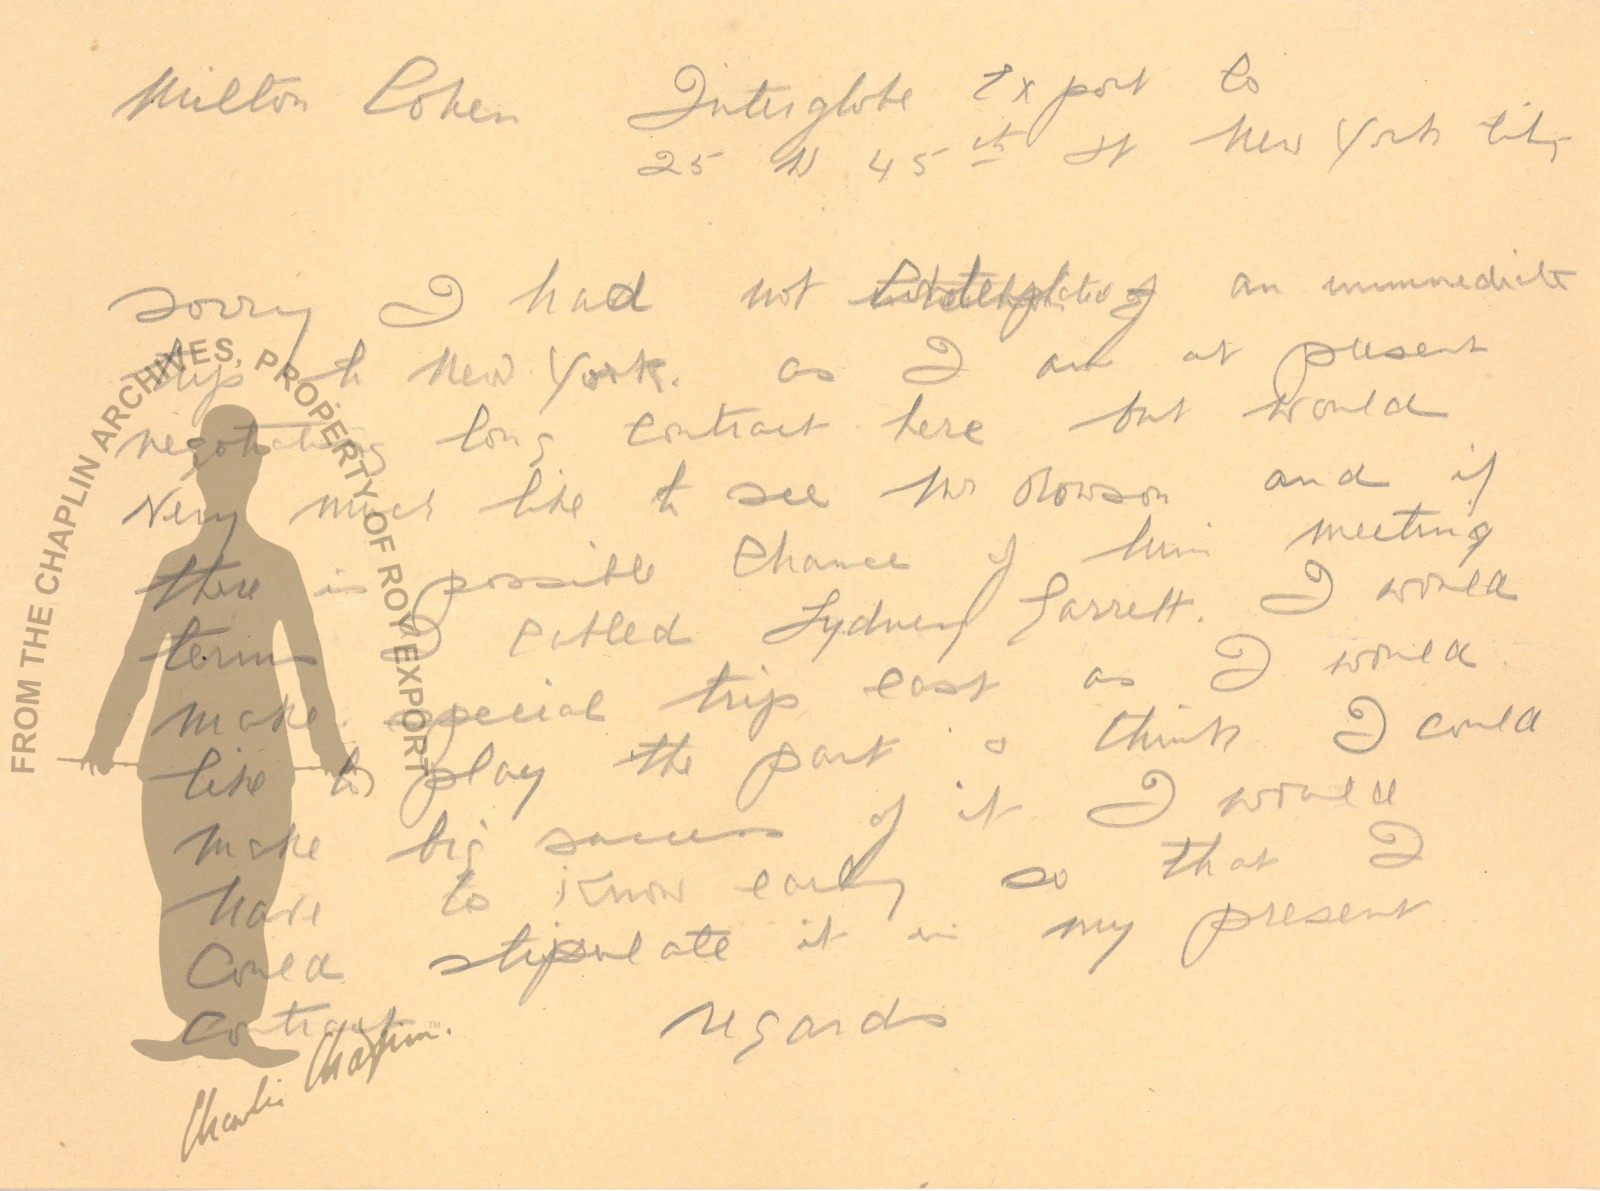 Milton Cohen Interglobe Export Co
25 W 45th St New York City
Sorry I had not an immmediate
trip to New York. as I am at present
negotiating long contract here but would
very much like to see Mr Rowson and if
there is possible chance of him meeting
terms I cabled Sydney Garrett. I would
make special trip east as I would
like to play the part & think I could
make big success of it I would
have to know early so that I
could stipulate it in my present
contract regards
FROM THE CHAPLIN ARCHIVES, PROPERTY OF ROY EXPORT
Charlie Chaplin™.